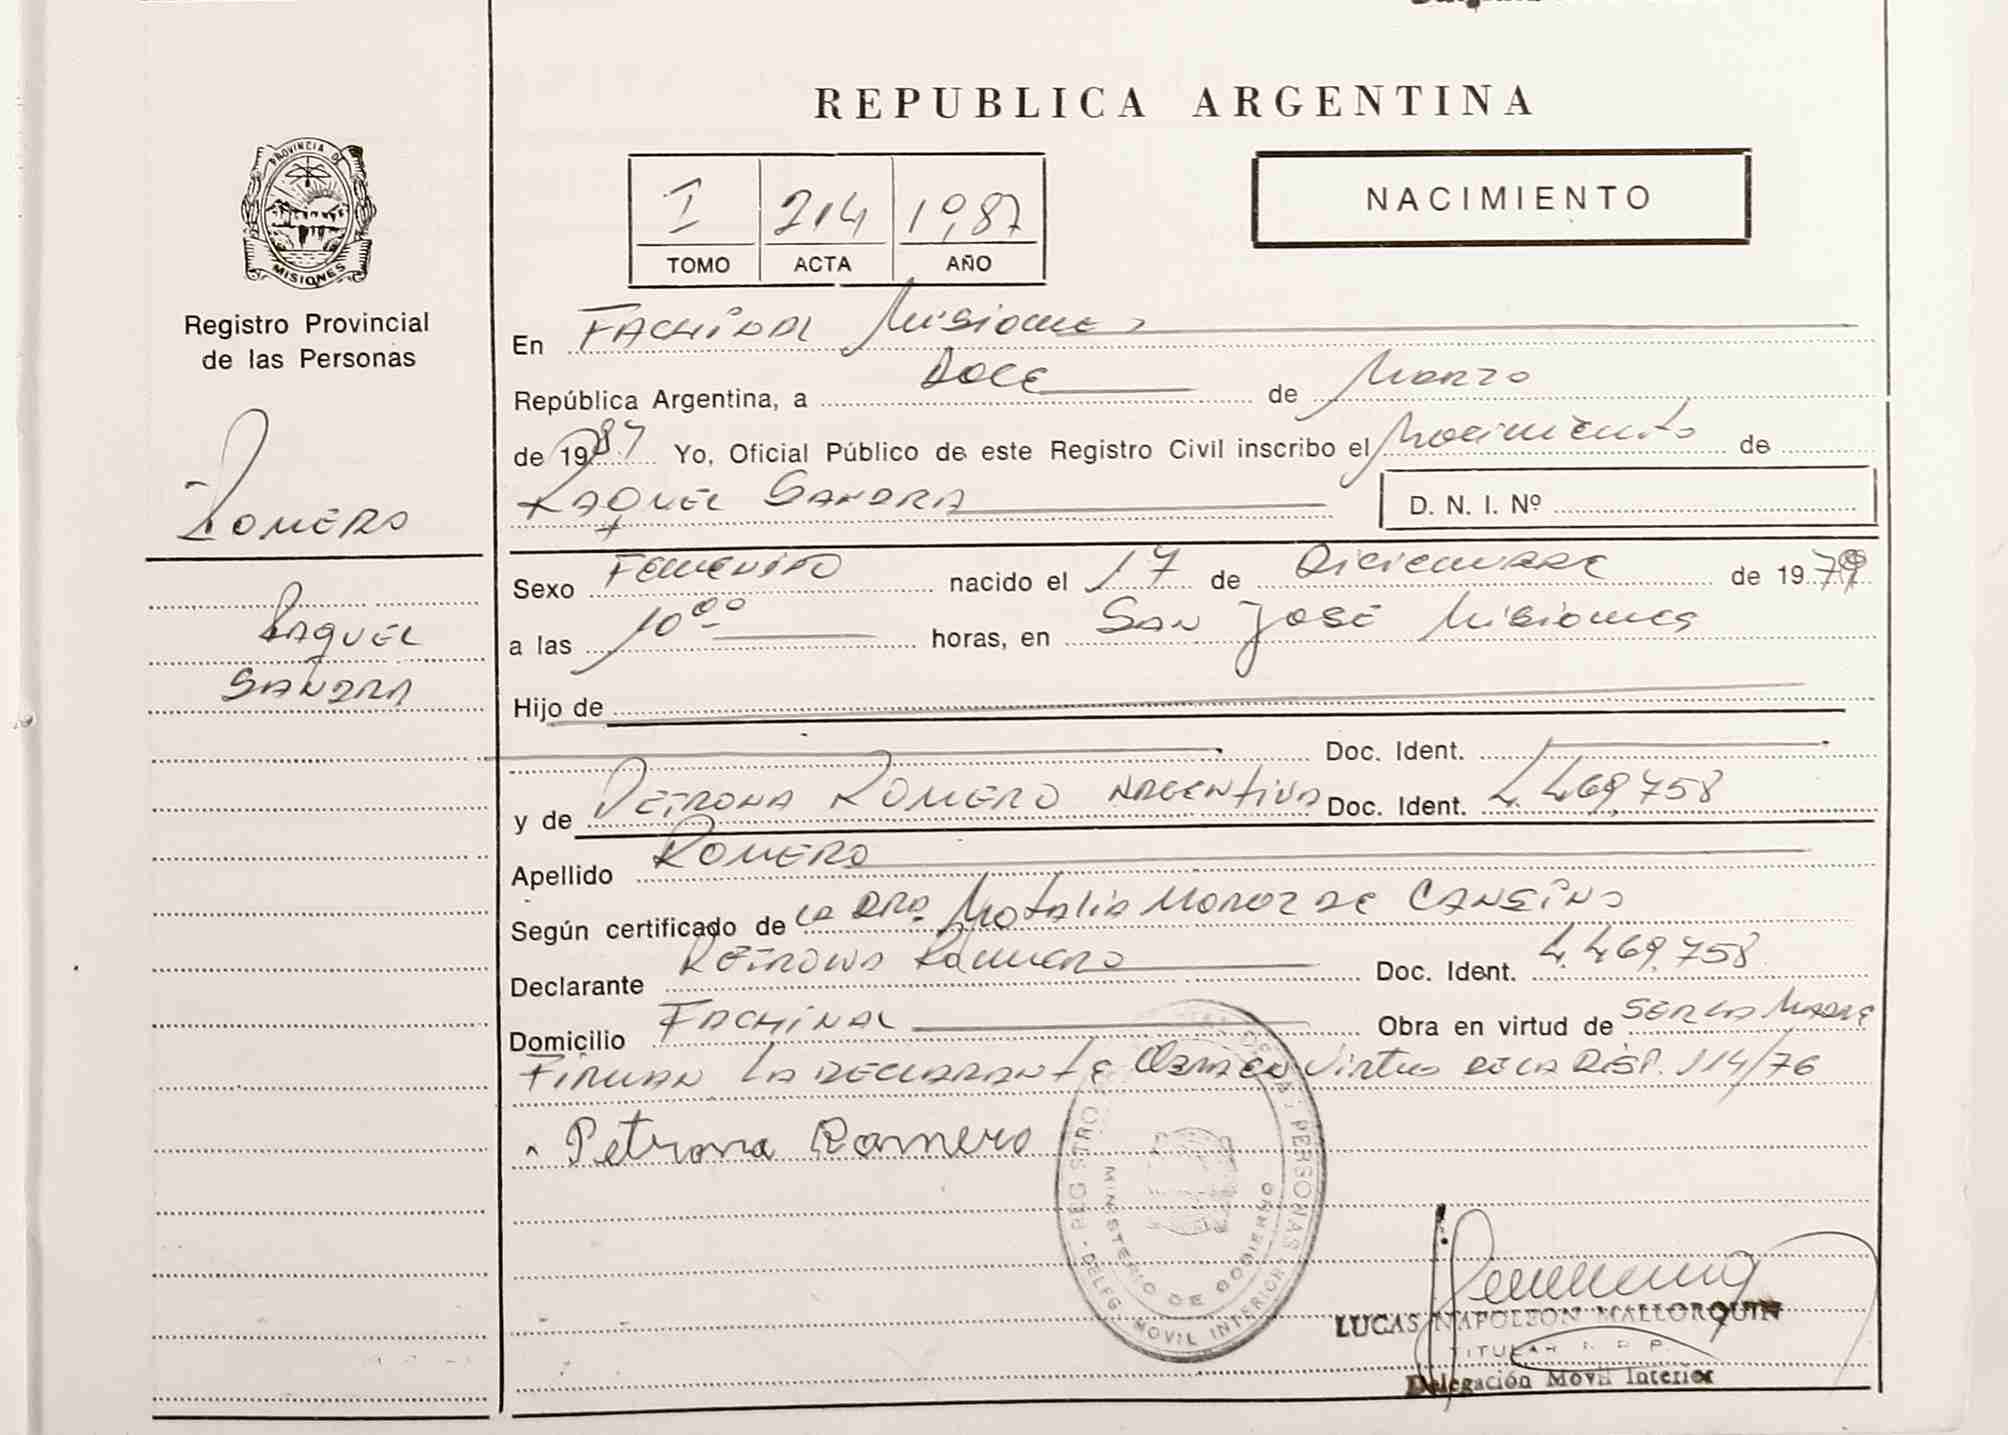 REPUBLICA ARGENTINA
PROVINCIA DE
MISIONES
Registro Provincial
de las Personas
Romero
Raquel
Sandra
I 214 1987
TOMO ACTA AÑO
NACIMIENTO
En Fachinal Misiones
República Argentina, a Doce de Marzo
de 1987 Yo, Oficial Público de este Registro Civil inscribo el Nacimiento de
Raquel Sandra D. N. I. Nº
Sexo Femenino nacido el 17 de Diciembre de 1979
a las 10 00 horas, en San José Misiones
Hijo de
Doc. Ident.
y de Petrona Romero Argentina Doc. Ident. 4.469.758
Apellido Romero
Según certificado de la Dra. Natalia Moroz de CanSino
Declarante Petrona Romero Doc. Ident. 4.469.758
Domicilio Fachinal Obra en virtud de Ser la Madre
Firman la declarante Obra en Virtud de la Disp. 114/76
Petrona Romero
REGISTRO PERSONAS
MINISTERIO DE GOBIERNO
DELEG. MOVIL INTERIOR
LUCAS NAPOLEON MALLORQUIN
TITULAR
Delegación Movil Interior